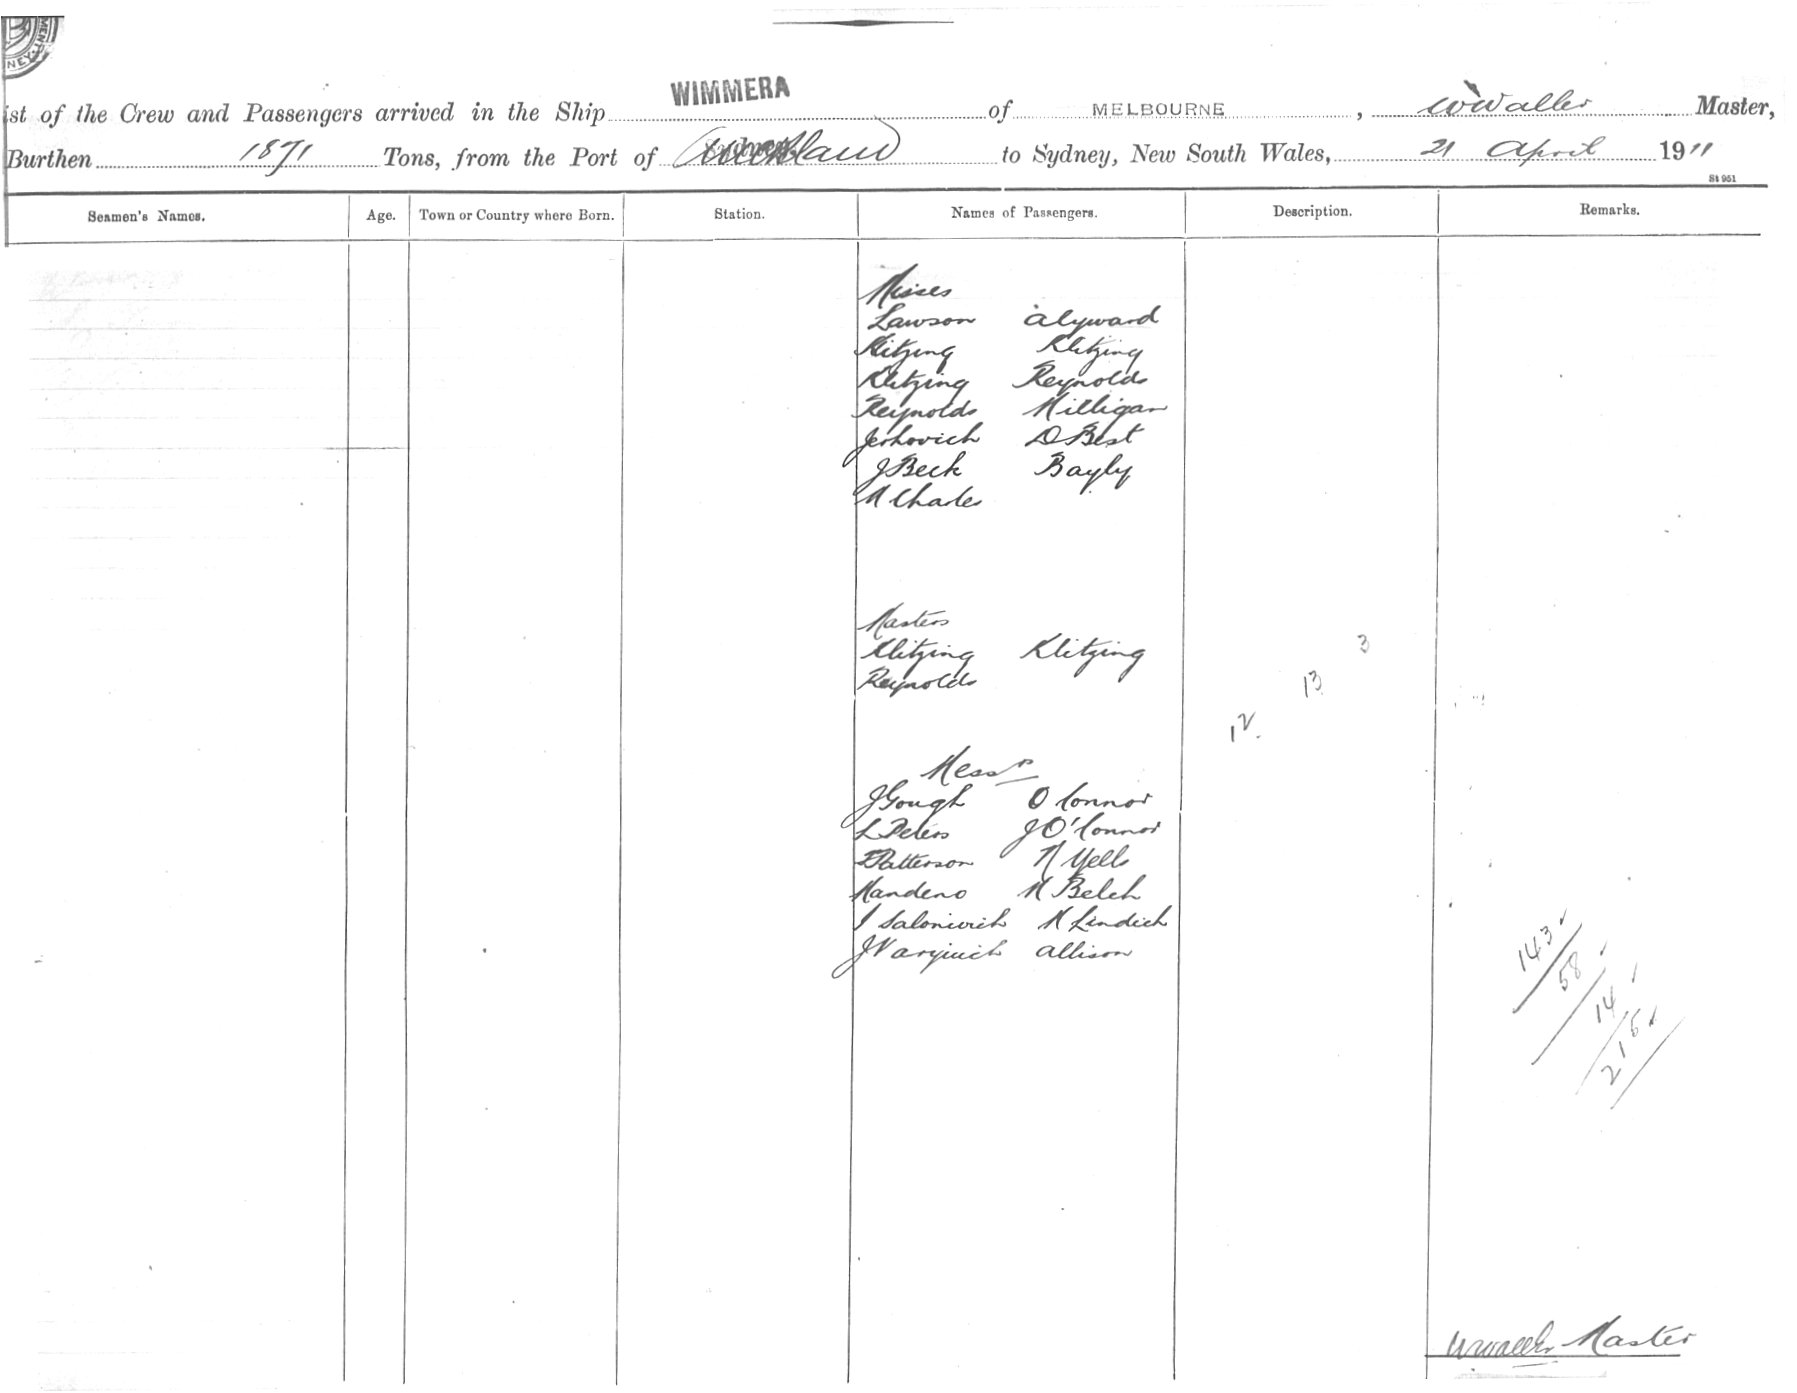 MENT. NEY.
ist of the Crew and Passengers arrived in the Ship WIMMERA of MELBOURNE, W Waller Master,
Burthen 1871 Tons, from the Port of Auckland to Sydney, New South Wales, 21 April 1911
St 951
Seamen's Names. Age. Town or Country where Born. Station. Names of Passengers. Description. Remarks.
Misses
Lawson Alyward
Klitzing Klitzing
Klitzing Reynolds
Reynolds Milligan
Jerhovich D Best
J Beck Bayly
M Charles
Masters
Klitzing Klitzing 3
Reynolds 13
12.
Messrs
J Gough O Connor
L Peters J O'Connor
Patterson N Yells
Mandeno M Belch
I Salonivich M Lindich
J Varjivich Allison
143
58
14
215
W Waller Master